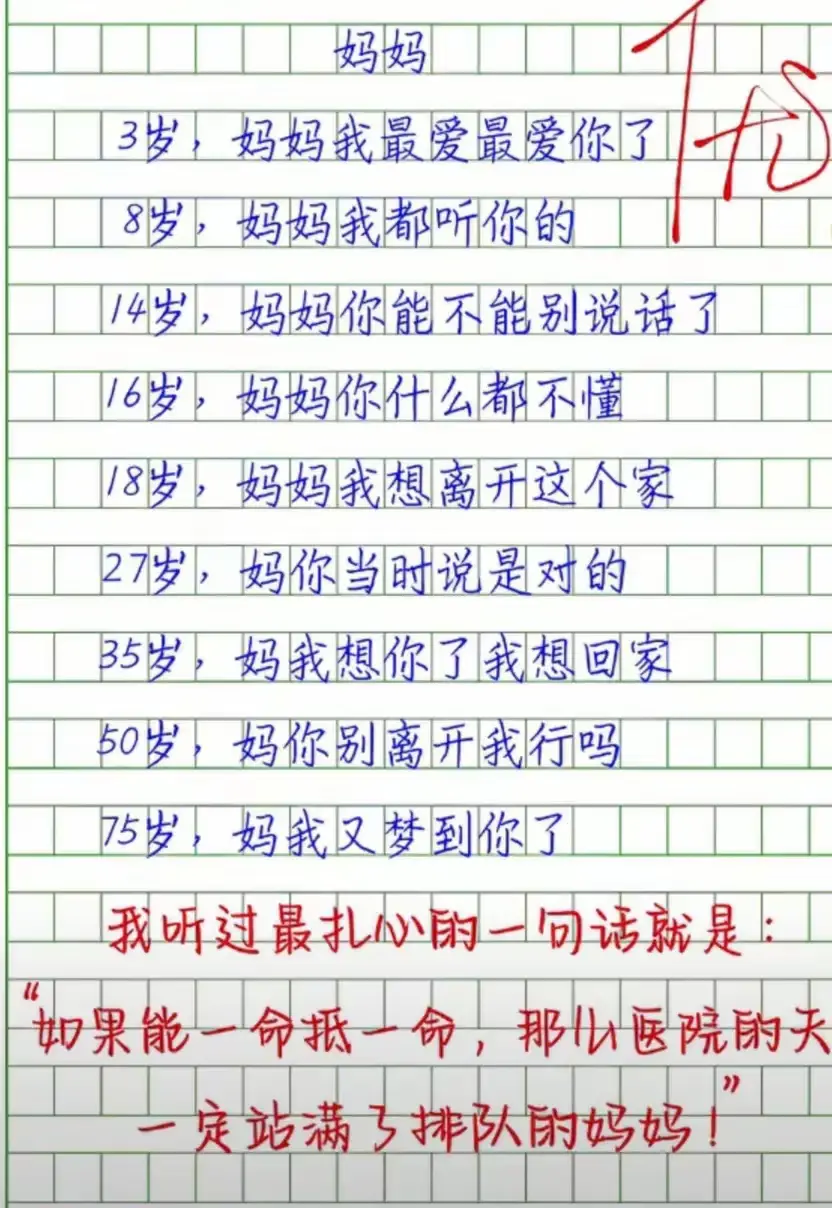 妈妈
优
3岁，妈妈我最爱最爱你了
8岁，妈妈我都听你的
14岁，妈妈你能不能别说话了
16岁，妈妈你什么都不懂
18岁，妈妈我想离开这个家
27岁，妈你当时说是对的
35岁，妈我想你了我想回家
50岁，妈你别离开我行吗
75岁，妈我又梦到你了
我听过最扎心的一句话就是：
“如果能一命抵一命，那么医院的天
一定站满了排队的妈妈！”